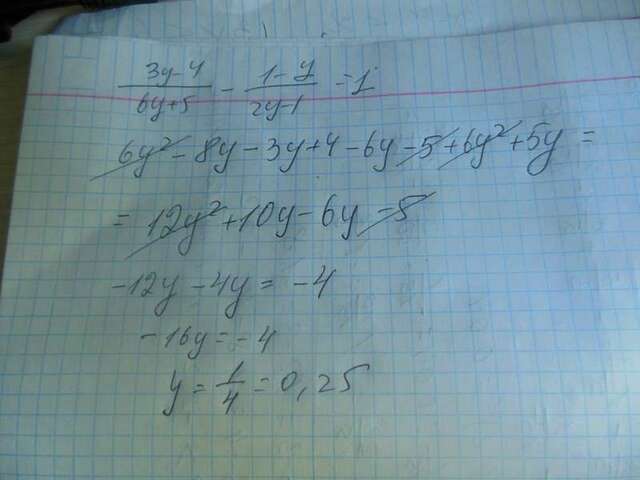 (3y-4)/(6y+5) - (1-y)/(2y-1) = 1
6y² - 8y - 3y + 4 - 6y - 5 + 6y² + 5y =
= 12y² + 10y - 6y - 5
-12y - 4y = -4
-16y = -4
y = 1/4 = 0,25